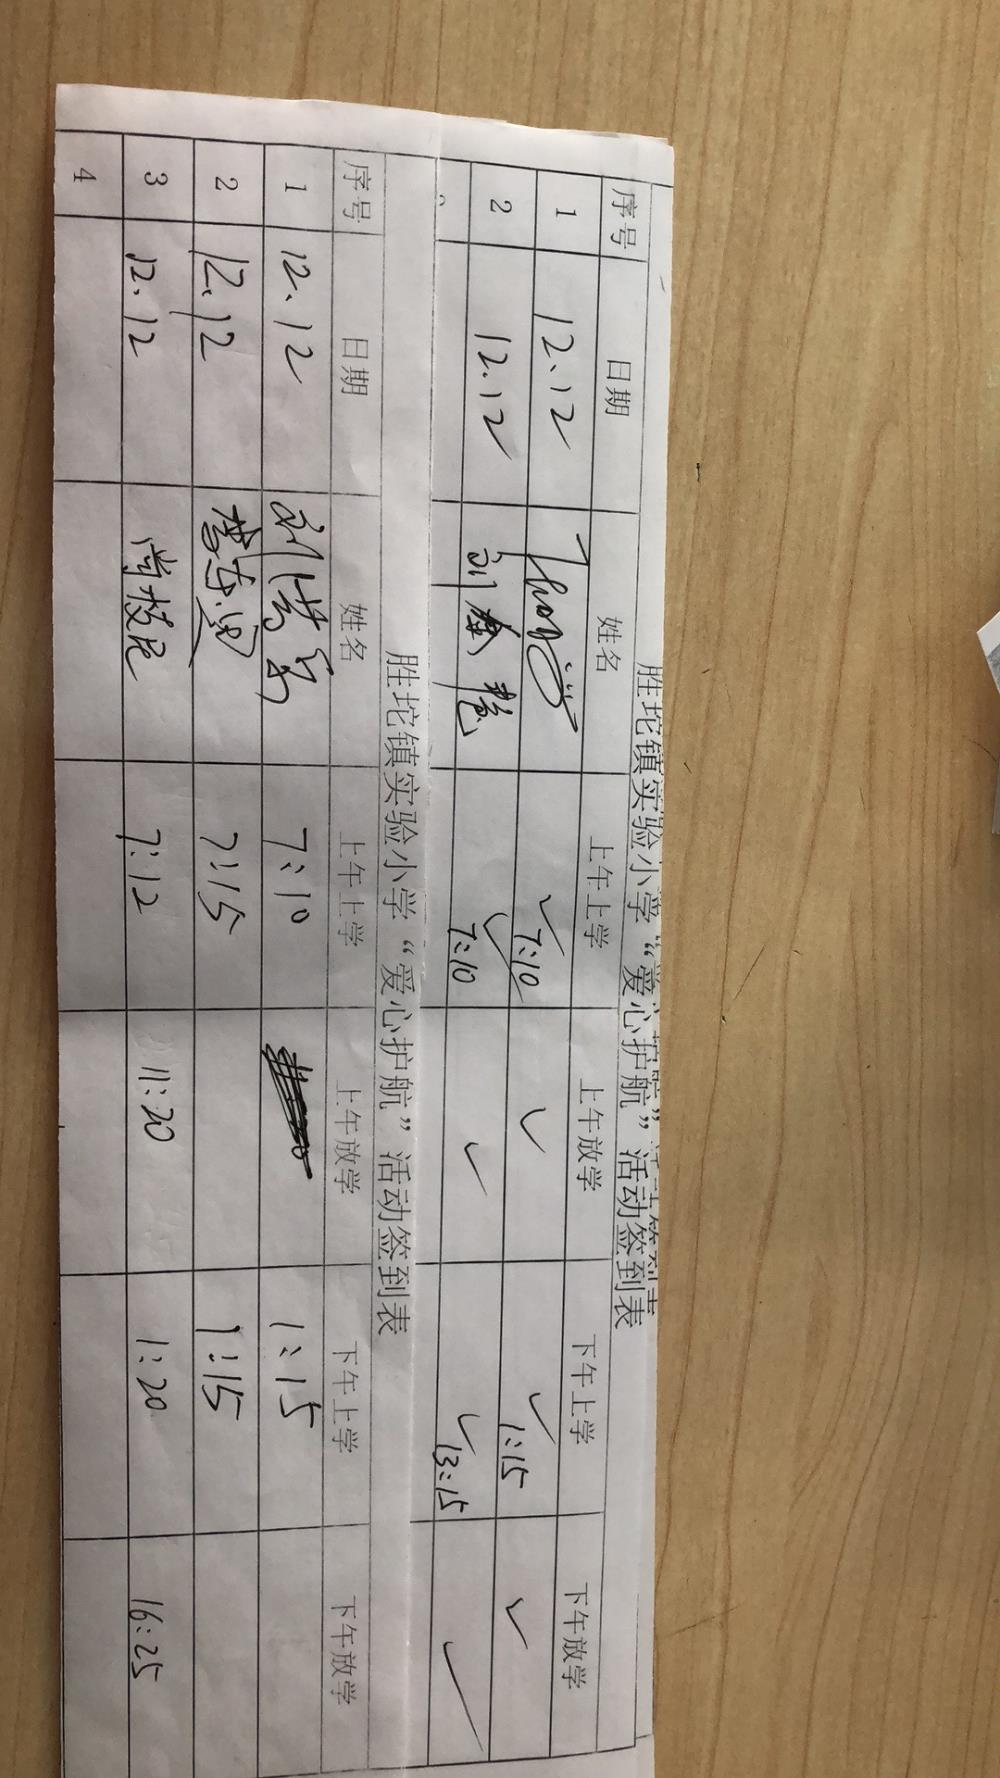 胜坨镇实验小学“爱心护航”活动签到表
序号 日期 姓名 上午上学 上午放学 下午上学 下午放学
1 12.12 ✓7:10 ✓ ✓1:15 ✓
2 12.12 ✓7:10 ✓ ✓13:15 ✓
胜坨镇实验小学“爱心护航”活动签到表
序号 日期 姓名 上午上学 上午放学 下午上学 下午放学
1 12.12 7:10 1:15
2 12.12 7:15 1:15
3 12.12 7:12 11:20 1:20 16:25
4